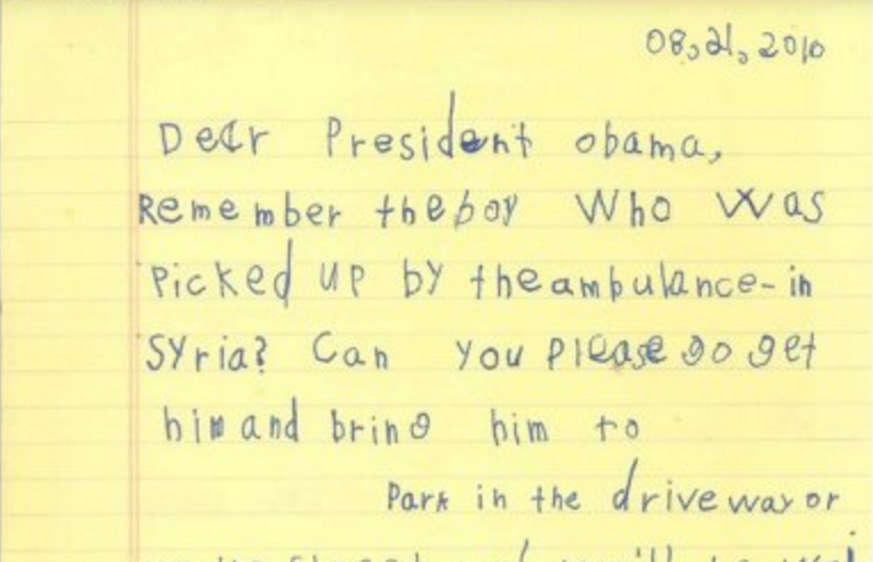 08, 21, 2010
Dear President obama,
Remember the boy Who Was
Picked up by the ambulance-in
Syria? Can you please go get
him and bring him to
Park in the driveway or